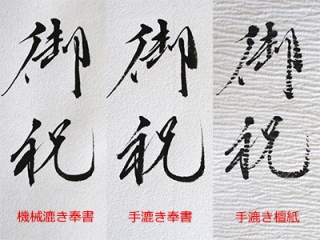 御祝
御祝
御祝
機械漉き奉書
手漉き奉書
手漉き檀紙